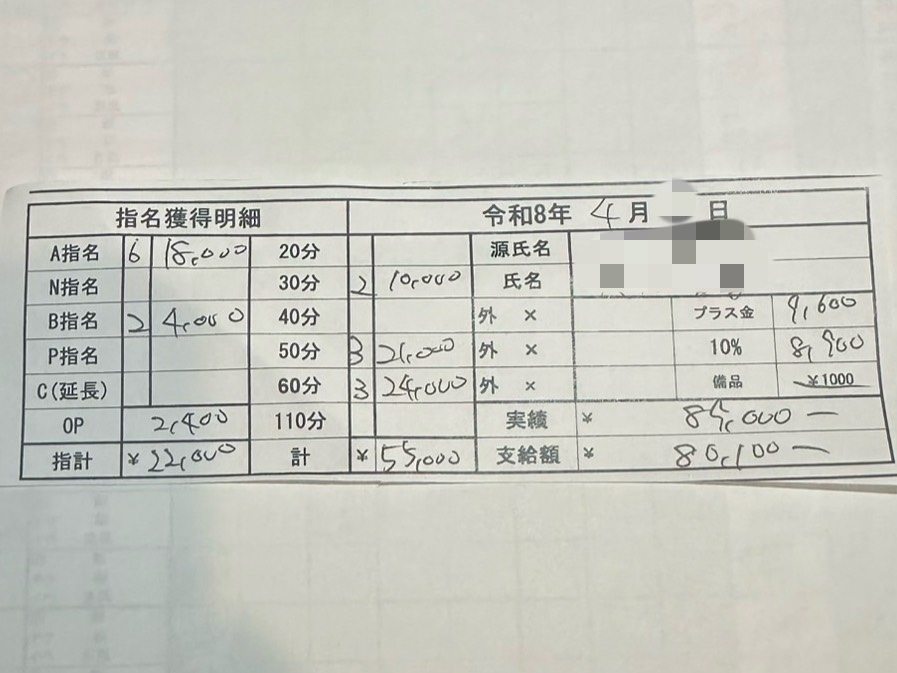 指名獲得明細 令和8年 4月 日
A指名 6 18,000 20分 源氏名
N指名 30分 2 10,000 氏名
B指名 2 4,000 40分 外 × プラス金 9,600
P指名 50分 3 21,000 外 × 10% 8,900
C(延長) 60分 3 24,000 外 × 備品 ¥1000
OP 2,400 110分 実績 ¥ 89,000 ー
指計 ¥ 22,000 計 ¥ 55,000 支給額 ¥ 80,100 ー